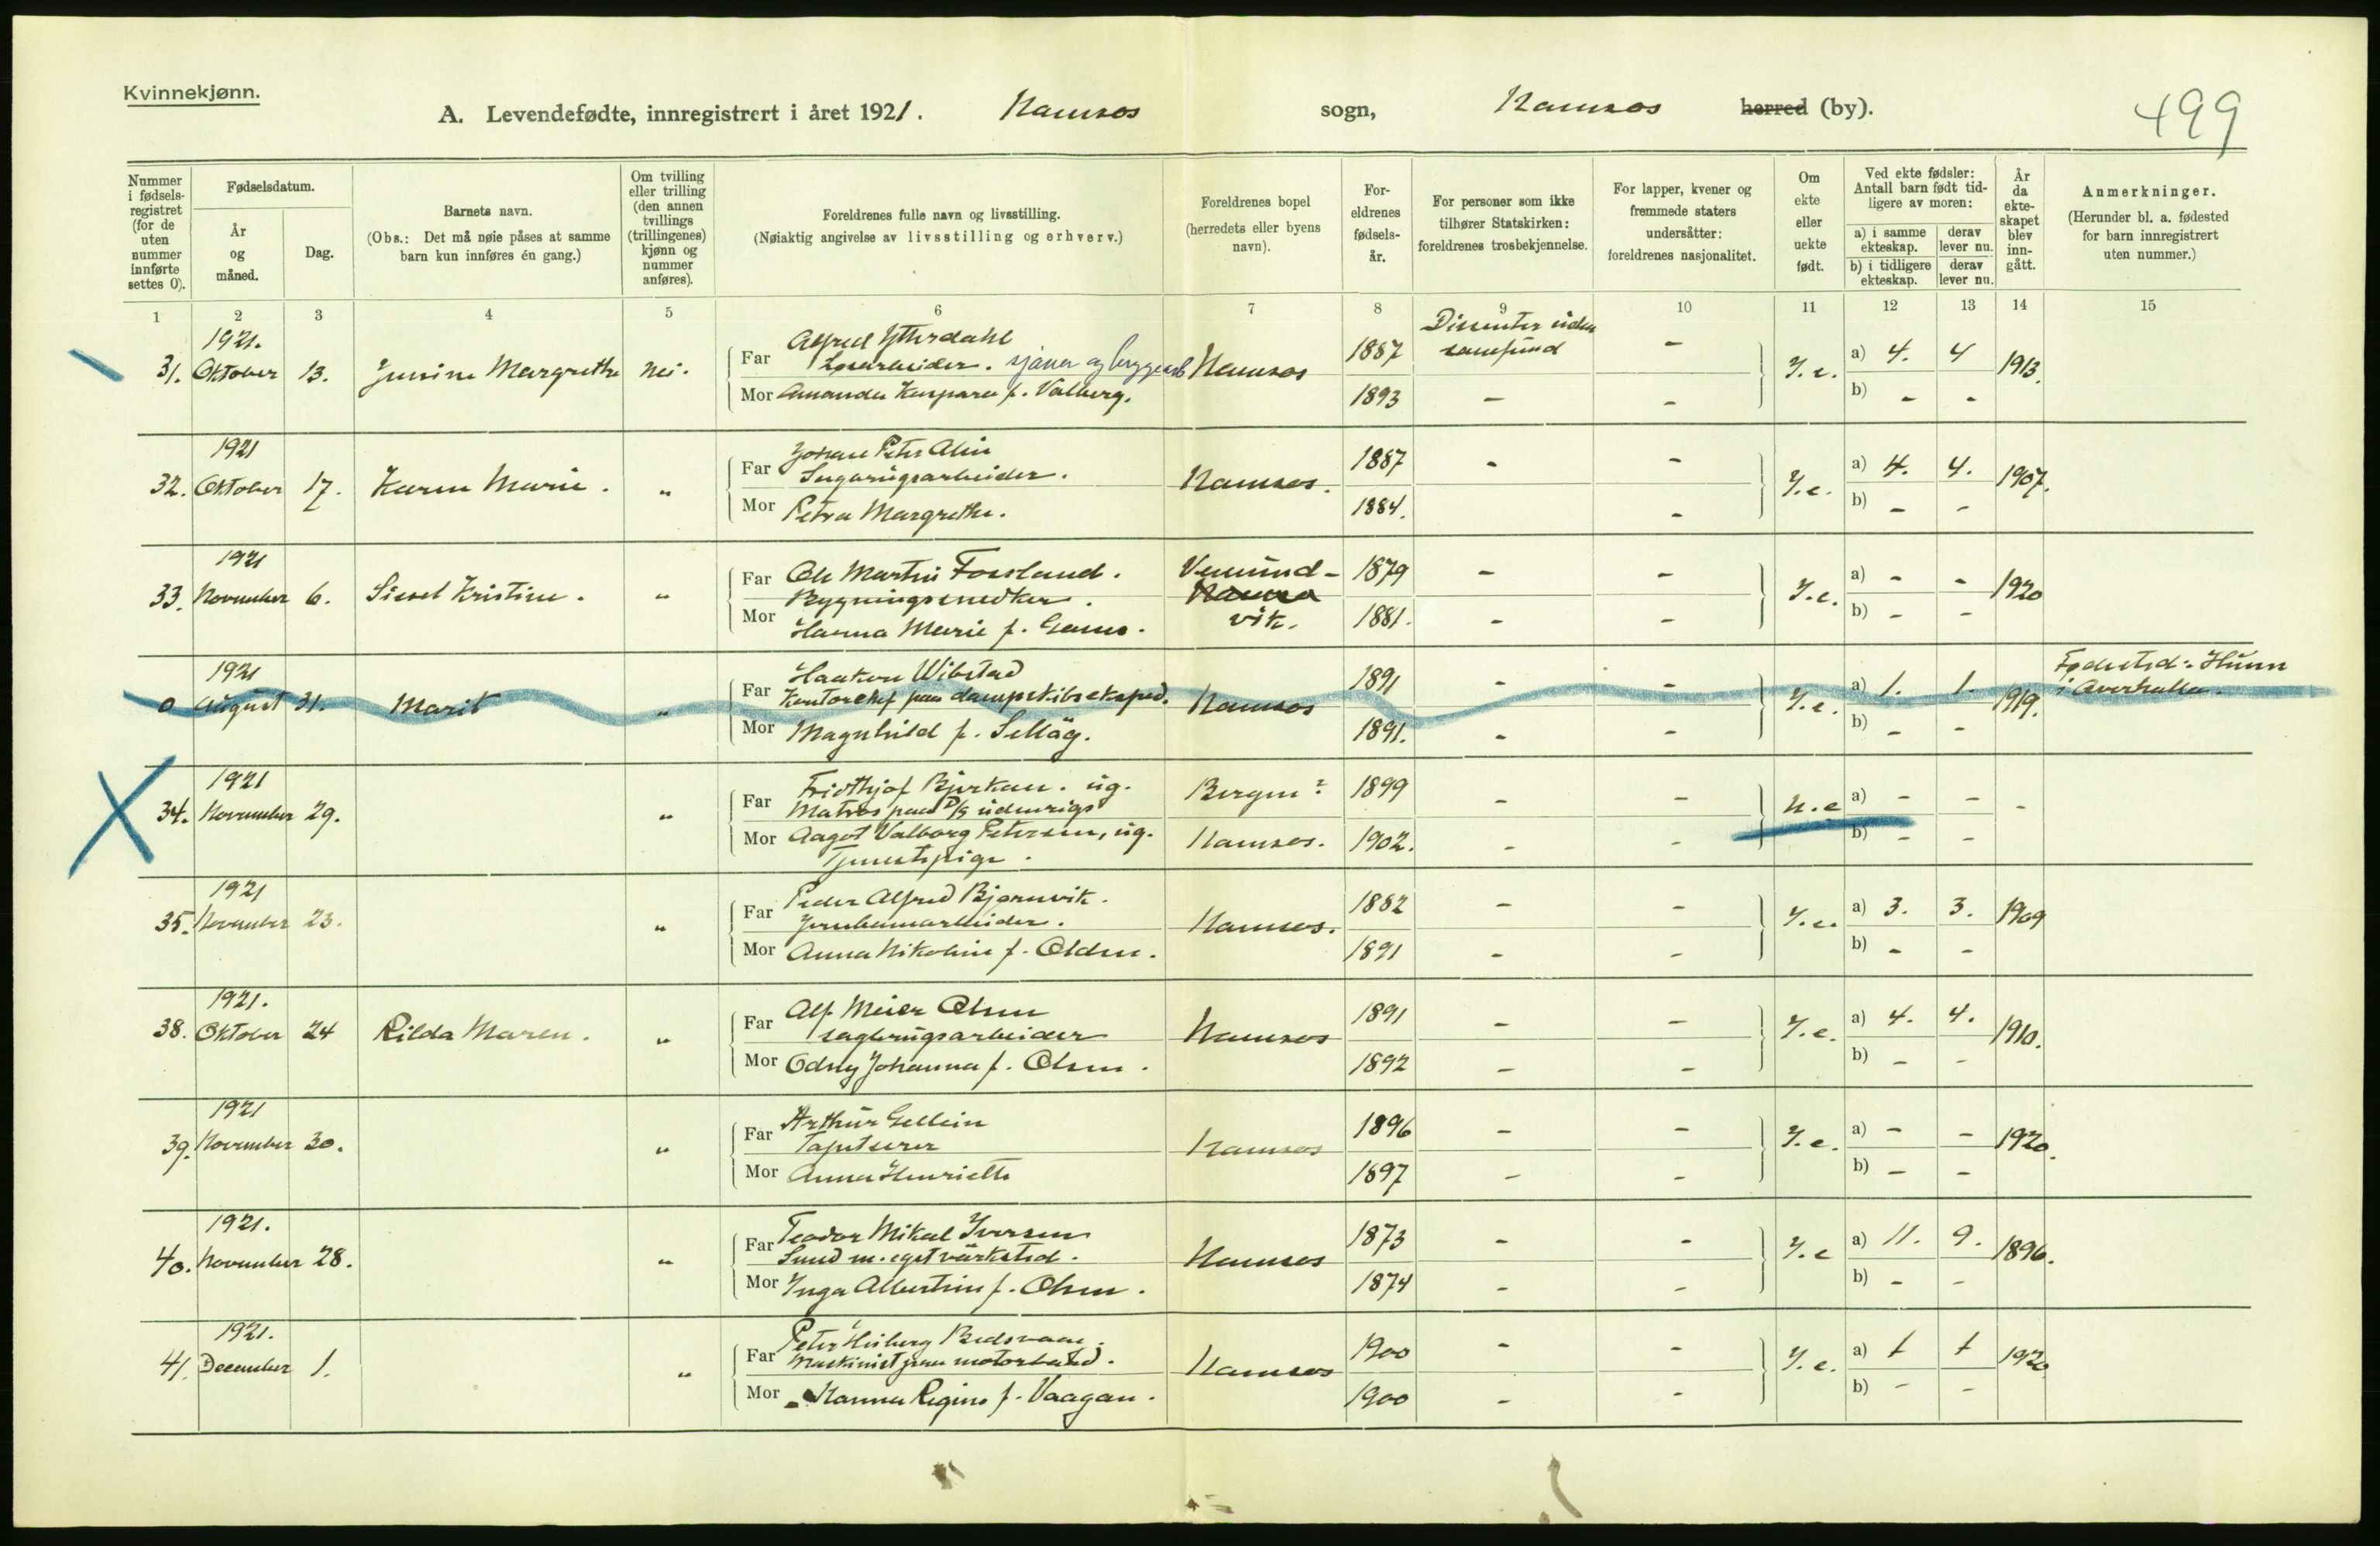 Kvinnekjønn.
A. Levendefødte, innregistrert i året 1921. Namsos sogn, Namsos herred (by).
499
Nummer i fødsels-registret (for de uten nummer innførte settes 0).
Fødselsdatum.
År og måned.
Dag.
Barnets navn.
(Obs.: Det må nøie påses at samme barn kun innføres én gang.)
Om tvilling eller trilling (den annen tvillings (trillingenes) kjønn og nummer anføres).
Foreldrenes fulle navn og livsstilling.
(Nøiaktig angivelse av livsstilling og erhverv.)
Foreldrenes bopel
(herredets eller byens navn).
For-eldrenes fødsels-år.
For personer som ikke tilhører Statskirken: foreldrenes trosbekjennelse.
For lapper, kvener og fremmede staters undersåtter: foreldrenes nasjonalitet.
Om ekte eller uekte født.
Ved ekte fødsler: Antall barn født tid-ligere av moren:
a) i samme ekteskap.
derav lever nu.
b) i tidligere ekteskap.
derav lever nu.
År da ekte-skapet blev inn-gått.
Anmerkninger.
(Herunder bl. a. fødested for barn innregistrert uten nummer.)
1 2 3 4 5 6 7 8 9 10 11 12 13 14 15
1921.
31. Oktober 13. Jensine Margrethe nei.
Far Alfred Ytterdahl
Løsarbeider. sjauer og bryggearb
Namsos 1887 Dissenter uden samfund - Y. e. a) 4. 4 1913.
Mor Amanda Kaspara f. Valberg. 1893 - - b) - -
1921
32. Oktober 17. Karen Marie. "
Far Johan Peter Alin
Sagbrugsarbeider.
Namsos. 1887 - - Y. e. a) 4. 4. 1907.
Mor Petra Margrethe. 1884. - b) - -
1921
33. November 6. Sissel Kristine. "
Far Ole Martin Fossland.
Bygningssnedker.
Vemund-
vik. 1879 - - Y. e. a) - - 1920
Mor Hanna Marie f. 1881. - - b) - -
1921
0 August 31. Marit "
Far Haakon Wibstad
Kontorchef paa dampskibseksped.
Namsos 1891 - - Y. e. a) 1. 1. 1919.
Fødested: Hunn
i Overhalla.
Mor Magnhild f. Selläg. 1891. - - b) - -
1921
34. November 29. "
Far Fridthjof Bjørkan. ug.
Matros paa D/S udenrigs
Bergen? 1899 - - u. e a) - - -
Mor Aagot Valborg Petersen, ug.
Tjenestepige.
Namsos. 1902. - - b) - -
1921
35. November 23. "
Far Peder Alfred Bjørnvik.
Jernbanearbeider.
Namsos. 1882 - - Y. e. a) 3. 3. 1909
Mor Anna Nikoline f. Olden. 1891 - - b) - -
1921.
38. Oktober 24 Rilda Maren. "
Far Alf Meier Olsen
sagbrugsarbeider
Namsos 1891 - - Y. e. a) 4. 4. 1910.
Mor Odny Johanna f. Olsen. 1892 - - b) - -
1921
39. November 30. "
Far Arthur Gellein
Tapetserer
Namsos 1896 - - Y. e. a) - - 1920.
Mor Anna Henriette 1897 - - b) - -
1921.
40. November 28. "
Far Teodor Mikal Iversen
Smed m. eget värksted.
Namsos 1873 - - Y. e a) 11. 9. 1896.
Mor Inga Albertine f. Olsen. 1874 - - b) - -
1921.
41. December 1. "
Far Peter Heiberg
Maskinist paa motorbaad.
Namsos 1900 - - Y. e. a) 1 1 1920
Mor Hanna Regine f. Vaagan. 1900 - - b) - -